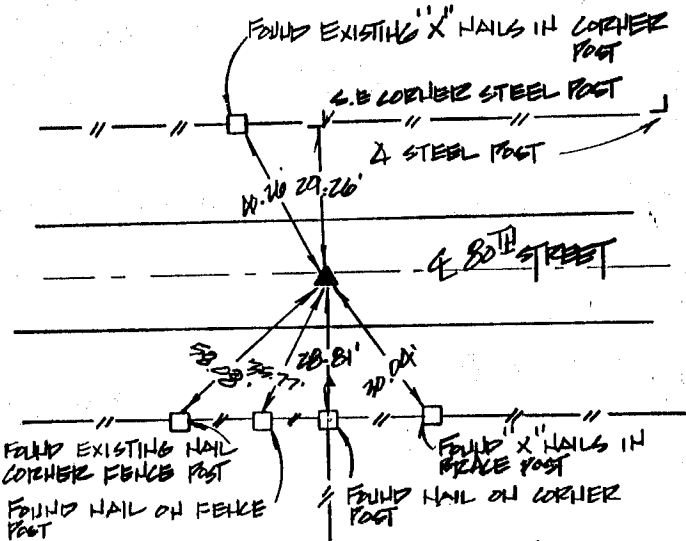 FOUND EXISTING "X" NAILS IN CORNER
POST
S.E CORNER STEEL POST
STEEL POST
29.26'
80TH STREET
28.81'
30.04'
FOUND EXISTING NAIL
CORNER FENCE POST
FOUND "X" NAILS IN
BRACE POST
FOUND NAIL ON FENCE
POST
FOUND NAIL ON CORNER
POST